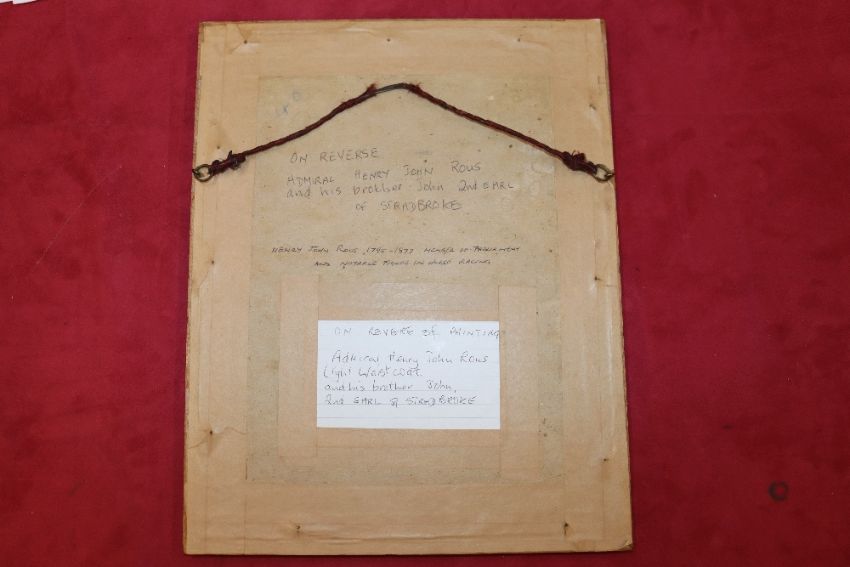 ON REVERSE
ADMIRAL HENRY JOHN ROUS
and his brother John 2nd EARL
OF STRADBROKE
HENRY JOHN ROUS, 1795-1877 MEMBER OF PARLIAMENT
AND NOTABLE FIGURE IN HORSE RACING
ON REVERSE OF PAINTING
Admiral Henry John Rous
Light Waistcoat
and his brother John,
2nd EARL of STRADBROKE